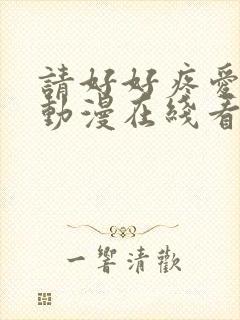 請好好疼愛
動漫在綫看
一響清歡